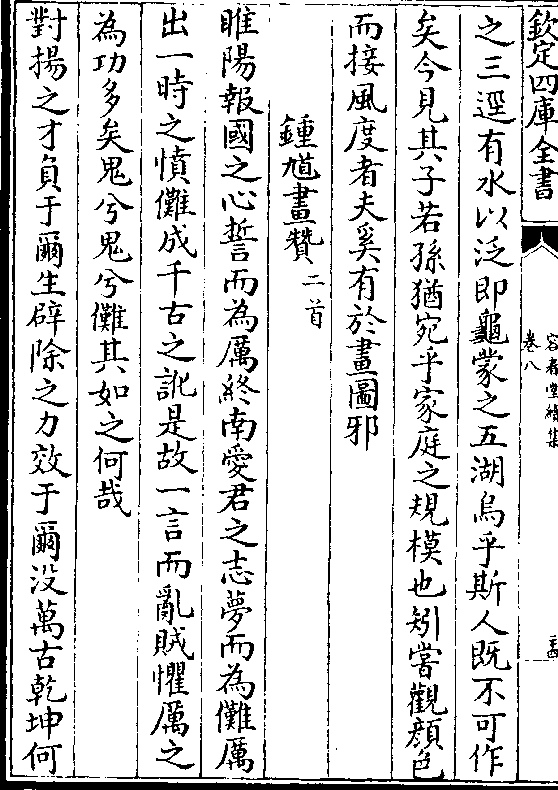 欽定四庫全書
容春堂續集
卷八
之三逕有水以泛即龜蒙之五湖烏乎斯人既不可作
矣今見其子若孫猶宛乎家庭之規模也矧嘗觀顔色
而接風度者夫奚有於畫圖邪
鍾馗畫贊二首
睢陽報國之心誓而為厲終南愛君之志夢而為儺厲
出一時之憤儺成千古之訛是故一言而亂賊懼厲之
為功多矣鬼兮鬼兮儺其如之何哉
對揚之才負于爾生辟除之力效于爾没萬古乾坤何